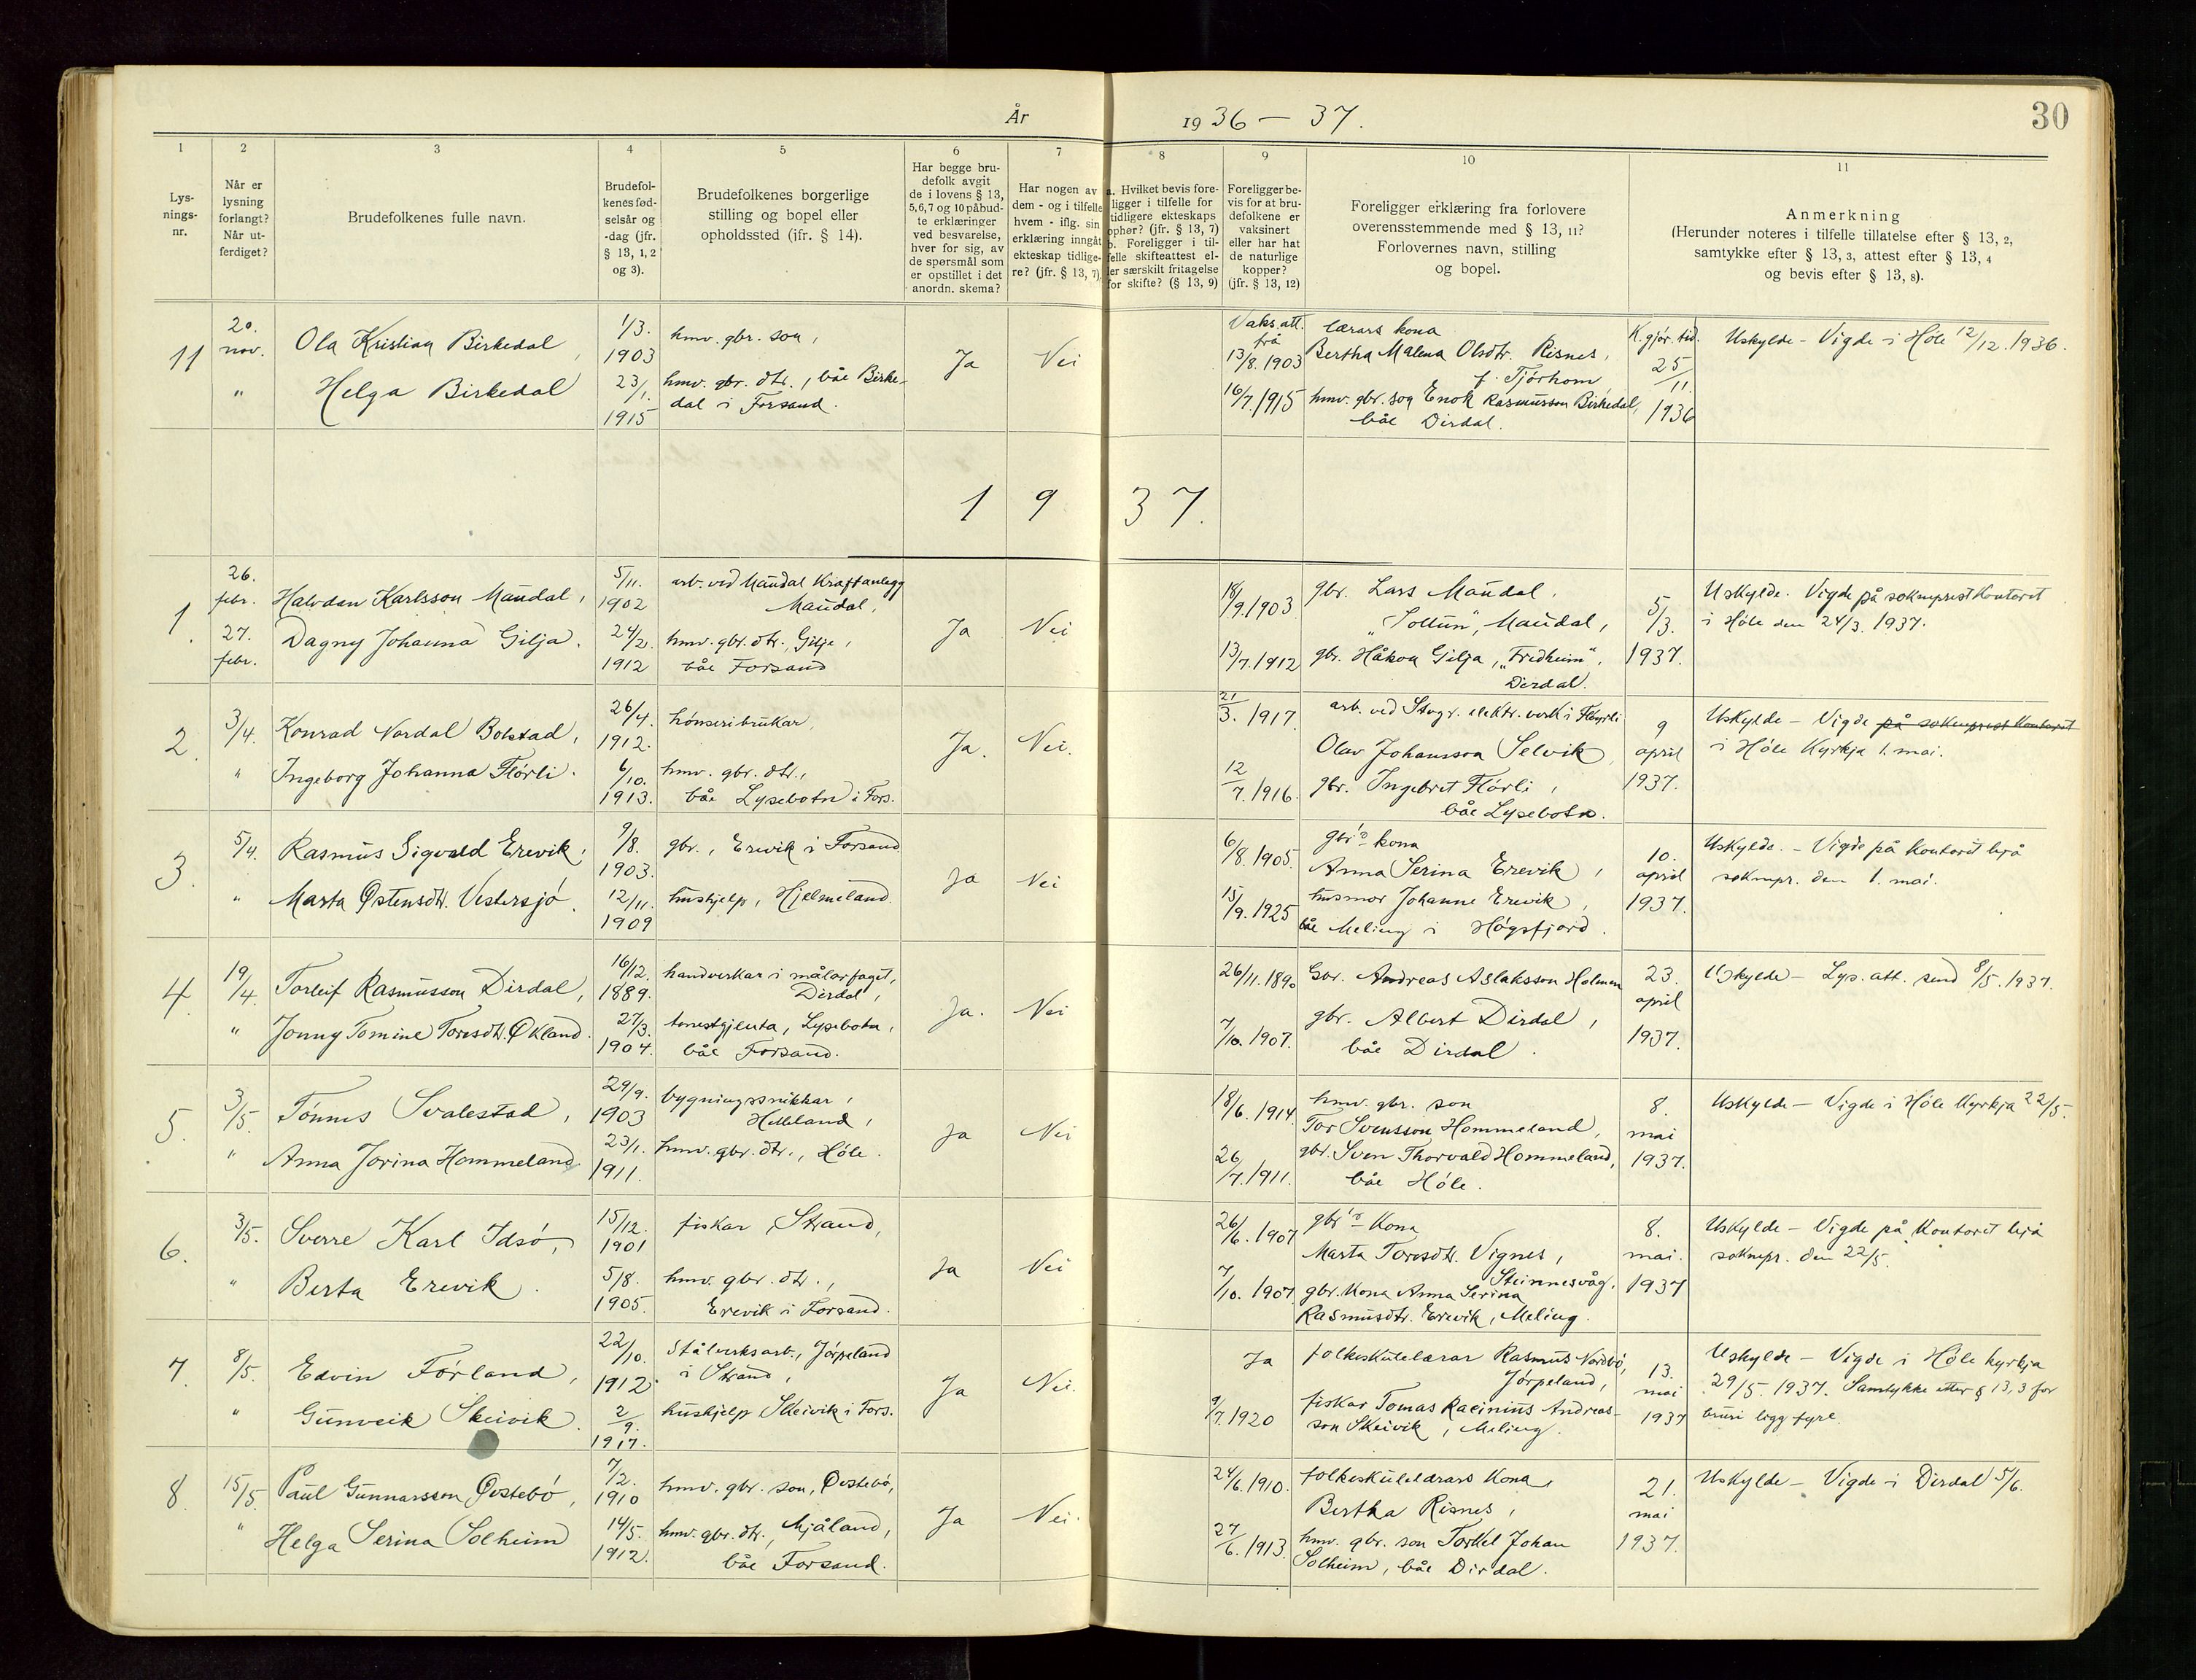 År 1936 – 37.
30
1
Lys-
nings-
nr.
2
Når er
lysning
forlangt?
Når ut-
ferdiget?
3
Brudefolkenes fulle navn.
4
Brudefol-
kenes fød-
selsår og
-dag (jfr.
§ 13, 1, 2
og 3).
5
Brudefolkenes borgerlige
stilling og bopel eller
opholdssted (jfr. § 14).
6
Har begge bru-
defolk avgit
de i lovens § 13,
5,6,7 og 10 påbud-
te erklæringer
ved besvarelse,
hver for sig, av
de spørsmål som
er opstillet i det
anordn. skema?
7
Har nogen av
dem - og i tilfelle
hvem - iflg. sin
erklæring inngåt
ekteskap tidlige-
re? (jfr. § 13, 7)
8
a. Hvilket bevis fore-
ligger i tilfelle for
tidligere ekteskaps
ophør? (jfr. § 13, 7)
b. Foreligger i til-
felle skifteattest el-
ler særskilt fritagelse
for skifte? (§ 13, 9)
9
Foreligger be-
vis for at bru-
defolkene er
vaksinert
eller har hat
de naturlige
kopper?
(jfr. § 13, 12)
10
Foreligger erklæring fra forlovere
overensstemmende med § 13, 11?
Forlovernes navn, stilling
og bopel.
11
Anmerkning
(Herunder noteres i tilfelle tillatelse efter § 13, 2,
samtykke efter § 13, 3, attest efter § 13, 4
og bevis efter § 13, 8).
11
20.
nov.
"
Ola Kristian Birkedal,
Helga Birkedal
1/3.
1903
23/1.
1915
hmv. gbr. son,
hmv. gbr. dtr., båe Birke-
dal i Forsand.
Ja
Nei
Vaks.att.
frå
13/8.1903
16/7.1915
lærars kona
Bertha Malena Olsdtr. Risnes,
f. Tjørhom,
hmv. gbr. son Enok Rasmusson Birkedal,
båe Dirdal.
K.gjer. tid.
25
/11.
1936
Uskylde – Vigde i Høle 12/12.1936.
1937.
1.
26.
febr.
27.
febr.
Halvdan Karlsson Maudal,
Dagny Johanna Gilja.
5/11.
1902
24/2.
1912
arb. ved Maudal Kraftanlegg
Maudal,
hmv. gbr. dtr., Gilja,
båe Forsand
Ja
Nei
18/9.1903
13/7.1912
gbr. Lars Maudal,
"Soltun", Maudal,
gbr. Håkon Gilja, "Fridheim",
Dirdal.
5/3.
1937.
Uskylde. Vigde på soknprestkontoret
i Høle den 24/3. 1937.
2.
3/4.
"
Konrad Nordal Bolstad,
Ingeborg Johanna Flørli.
26/4.
1912.
6/10.
1913.
hønseribrukar,
hmv. gbr. dtr.,
båe Lysebotn i Fors.
Ja.
Nei.
21/3. 1917.
12/7.1916.
arb. ved Stvgr. elektr. verk i Flørli
Olav Johansson Selvik,
gbr. Ingebret Flørli,
båe Lysebotn.
9
april
1937.
Uskylde – Vigde på soknprestkontoret
i Høle Kyrkja 1. mai.
3.
5/4.
"
Rasmus Sigvald Erevik,
Marta Østensdtr. Vestersjø.
9/8.
1903.
12/11.
1909
gbr., Erevik i Forsand
hushjelp, Hjelmeland.
Ja
Nei
6/8. 1905.
15/9.1925
gbr's kona
Anna Serina Erevik,
husmor Johanne Erevik,
båe Meling i Høgsfjord.
10.
april
1937.
Uskylde. – Vigde på kontoret hjå
soknpr. den 1. mai.
4.
19/4.
"
Torleif Rasmusson Dirdal,
Jonny Tomine Toresdtr. Økland.
16/12.
1889.
27/3.
1904.
handverkar i målarfaget,
Dirdal,
tenestgjenta, Lysebotn,
båe Forsand.
Ja.
Nei
26/11.1890
7/10.1907.
Gbr. Andreas Aslaksson Holmen
gbr. Albert Dirdal,
båe Dirdal.
23.
april
1937.
Uskylde – Lys. att. send 8/5.1937.
5.
3/5.
"
Tønnes Svalestad,
Anna Jorina Hommeland
29/9.
1903
23/1.
1911.
bygningssnikkar,
Helleland,
hmv. gbr. dtr., Høle.
Ja
Nei
18/6.1914.
26/7.1911.
hmv. gbr. son
Tor Svensson Hommeland,
gbr. Sven Thorvald Hommeland,
båe Høle.
8.
mai
1937.
Uskylde – Vigde i Høle Kyrkja 22/5.
6.
3/5.
"
Sverre Karl Idsø,
Berta Erevik.
15/12.
1901
5/8.
1905.
fiskar, Strand,
hmv. gbr. dtr.,
Erevik i Forsand.
Ja
Nei
26/6.1907
7/10. 1907
gbr's Kona
Marta Toresdtr. Vignes,
Steinnesvåg,
gbr. Kona Anna Serina
Rasmusdtr. Erevik, Meling.
8.
mai.
1937
Uskylde – Vigde på Kontoret hjå
soknpr. den 22/5.
7.
8/5.
"
Edvin Førland,
Gunveik Skeivik.
22/10.
1912
2/9.
1917.
Stålverksarb., Jørpeland
i Strand,
hushjelp Skeivik i Fors.
Ja
Nei.
Ja
9/7.1920
folkeskulelærar Rasmus Nordbø,
Jørpeland,
fiskar Tomas Racinius Andreas-
son Skeivik, Meling.
13.
mai
1937
Uskylde – Vigde i Høle kyrkja
29/5. 1937. Samtykke etter § 13,3 for
bruri ligg fyre.
8.
15/5.
"
Paul Gunnarsson Østebø,
Helga Serina Solheim
7/2.
1910
14/5.
1912.
hmv. gbr. son, Østebø,
hmv. gbr. dtr., Mjåland,
båe Forsand.
Ja
Nei.
24/6.1910.
27/6.1913.
folkeskulelærars Kona,
Bertha Risnes,
hmv. gbr. son Torkel Johan
Solheim, båe Dirdal.
21.
mai
1937.
Uskylde – Vigde i Dirdal 5/6.